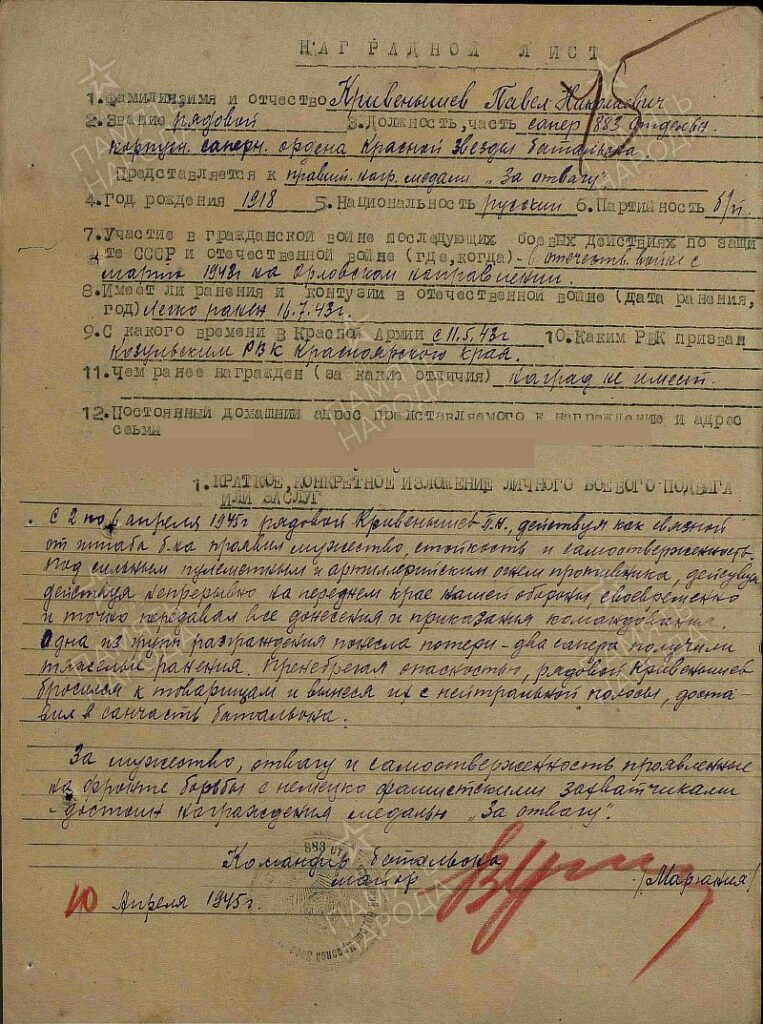 НАГРАДНОЙ ЛИСТ
1. Фамилия, имя и отчество Кривенышев Павел Николаевич
2. Звание рядовой 3. Должность, часть сапер 883 отдельн.
корпусн. саперн. ордена Красной Звезды батальона.
Представляется к правит. нагр. медали „За отвагу"
4. Год рождения 1918 5. Национальность русский 6. Партийность б/п.
7. Участие в гражданской войне последующих боевых действиях по защи
те СССР и отечественной войне (где, когда) - в отечеств. войне с
марта 1943г на Орловском направлении.
8. Имеет ли ранения и контузии в отечественной войне (дата ранения,
год) Легко ранен 16.7.43г.
9. С какого времени в Красной Армии с 11.5.43г 10. Каким РВК призван
Козульским РВК Красноярского края.
11. Чем ранее награжден (за какие отличия) наград не имеет.
12. Постоянный домашний адрес представляемого к награждению и адрес
семьи
1. КРАТКОЕ, КОНКРЕТНОЕ ИЗЛОЖЕНИЕ ЛИЧНОГО БОЕВОГО ПОДВИГА
ИЛИ ЗАСЛУГ
С 2 по 6 апреля 1945г рядовой Кривенышев П.Н., действуя как связной
от штаба б-на проявил мужество, стойкость и самоотверженность.
Под сильным пулеметным и артиллерийским огнем противника,
действуя непрерывно на переднем крае нашей обороны, своевременно
и точно передавал все донесения и приказания командования.
Одна из групп разграждения понесла потери - два сапера получили
тяжелые ранения. Пренебрегая опасностью, рядовой Кривенышев
бросился к товарищам и вынеся их с нейтральной полосы, доста-
вил в санчасть батальона.
За мужество, отвагу и самоотверженность проявленные
на фронте борьбы с немецко фашистскими захватчиками
- достоин награждения медалью „За отвагу".
Командир батальона
майор /Маргания/
10 Апреля 1945г.
ПАМЯТЬ НАРОДА